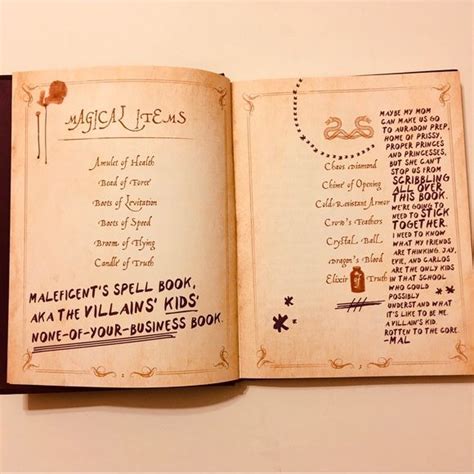 MAGICAL ITEMS
Amulet of Health
Bead of Force
Boots of Levitation
Boots of Speed
Broom of Flying
Candle of Truth
MALEFICENT'S SPELL BOOK,
AKA THE VILLAINS' KIDS'
NONE-OF-YOUR-BUSINESS BOOK.
Chaos Diamond
Chime of Opening
Cold-Resistant Armor
Crow's Feathers
Crystal Ball
Dragon's Blood
Elixir Truth
MAYBE MY MOM
CAN MAKE US GO
TO AURADON PREP,
HOME OF PRISSY,
PROPER PRINCES
AND PRINCESSES,
BUT SHE CAN'T
STOP US FROM
SCRIBBLING
ALL OVER
THIS BOOK.
WE'RE GOING TO
NEED TO STICK
TOGETHER.
I NEED TO KNOW
WHAT MY FRIENDS
ARE THINKING. JAY,
EVIE, AND CARLOS
ARE THE ONLY KIDS
IN THIS SCHOOL
WHO COULD
POSSIBLY
UNDERSTAND WHAT
IT'S LIKE TO BE ME.
A VILLAIN'S KID.
ROTTEN TO THE CORE.
-MAL